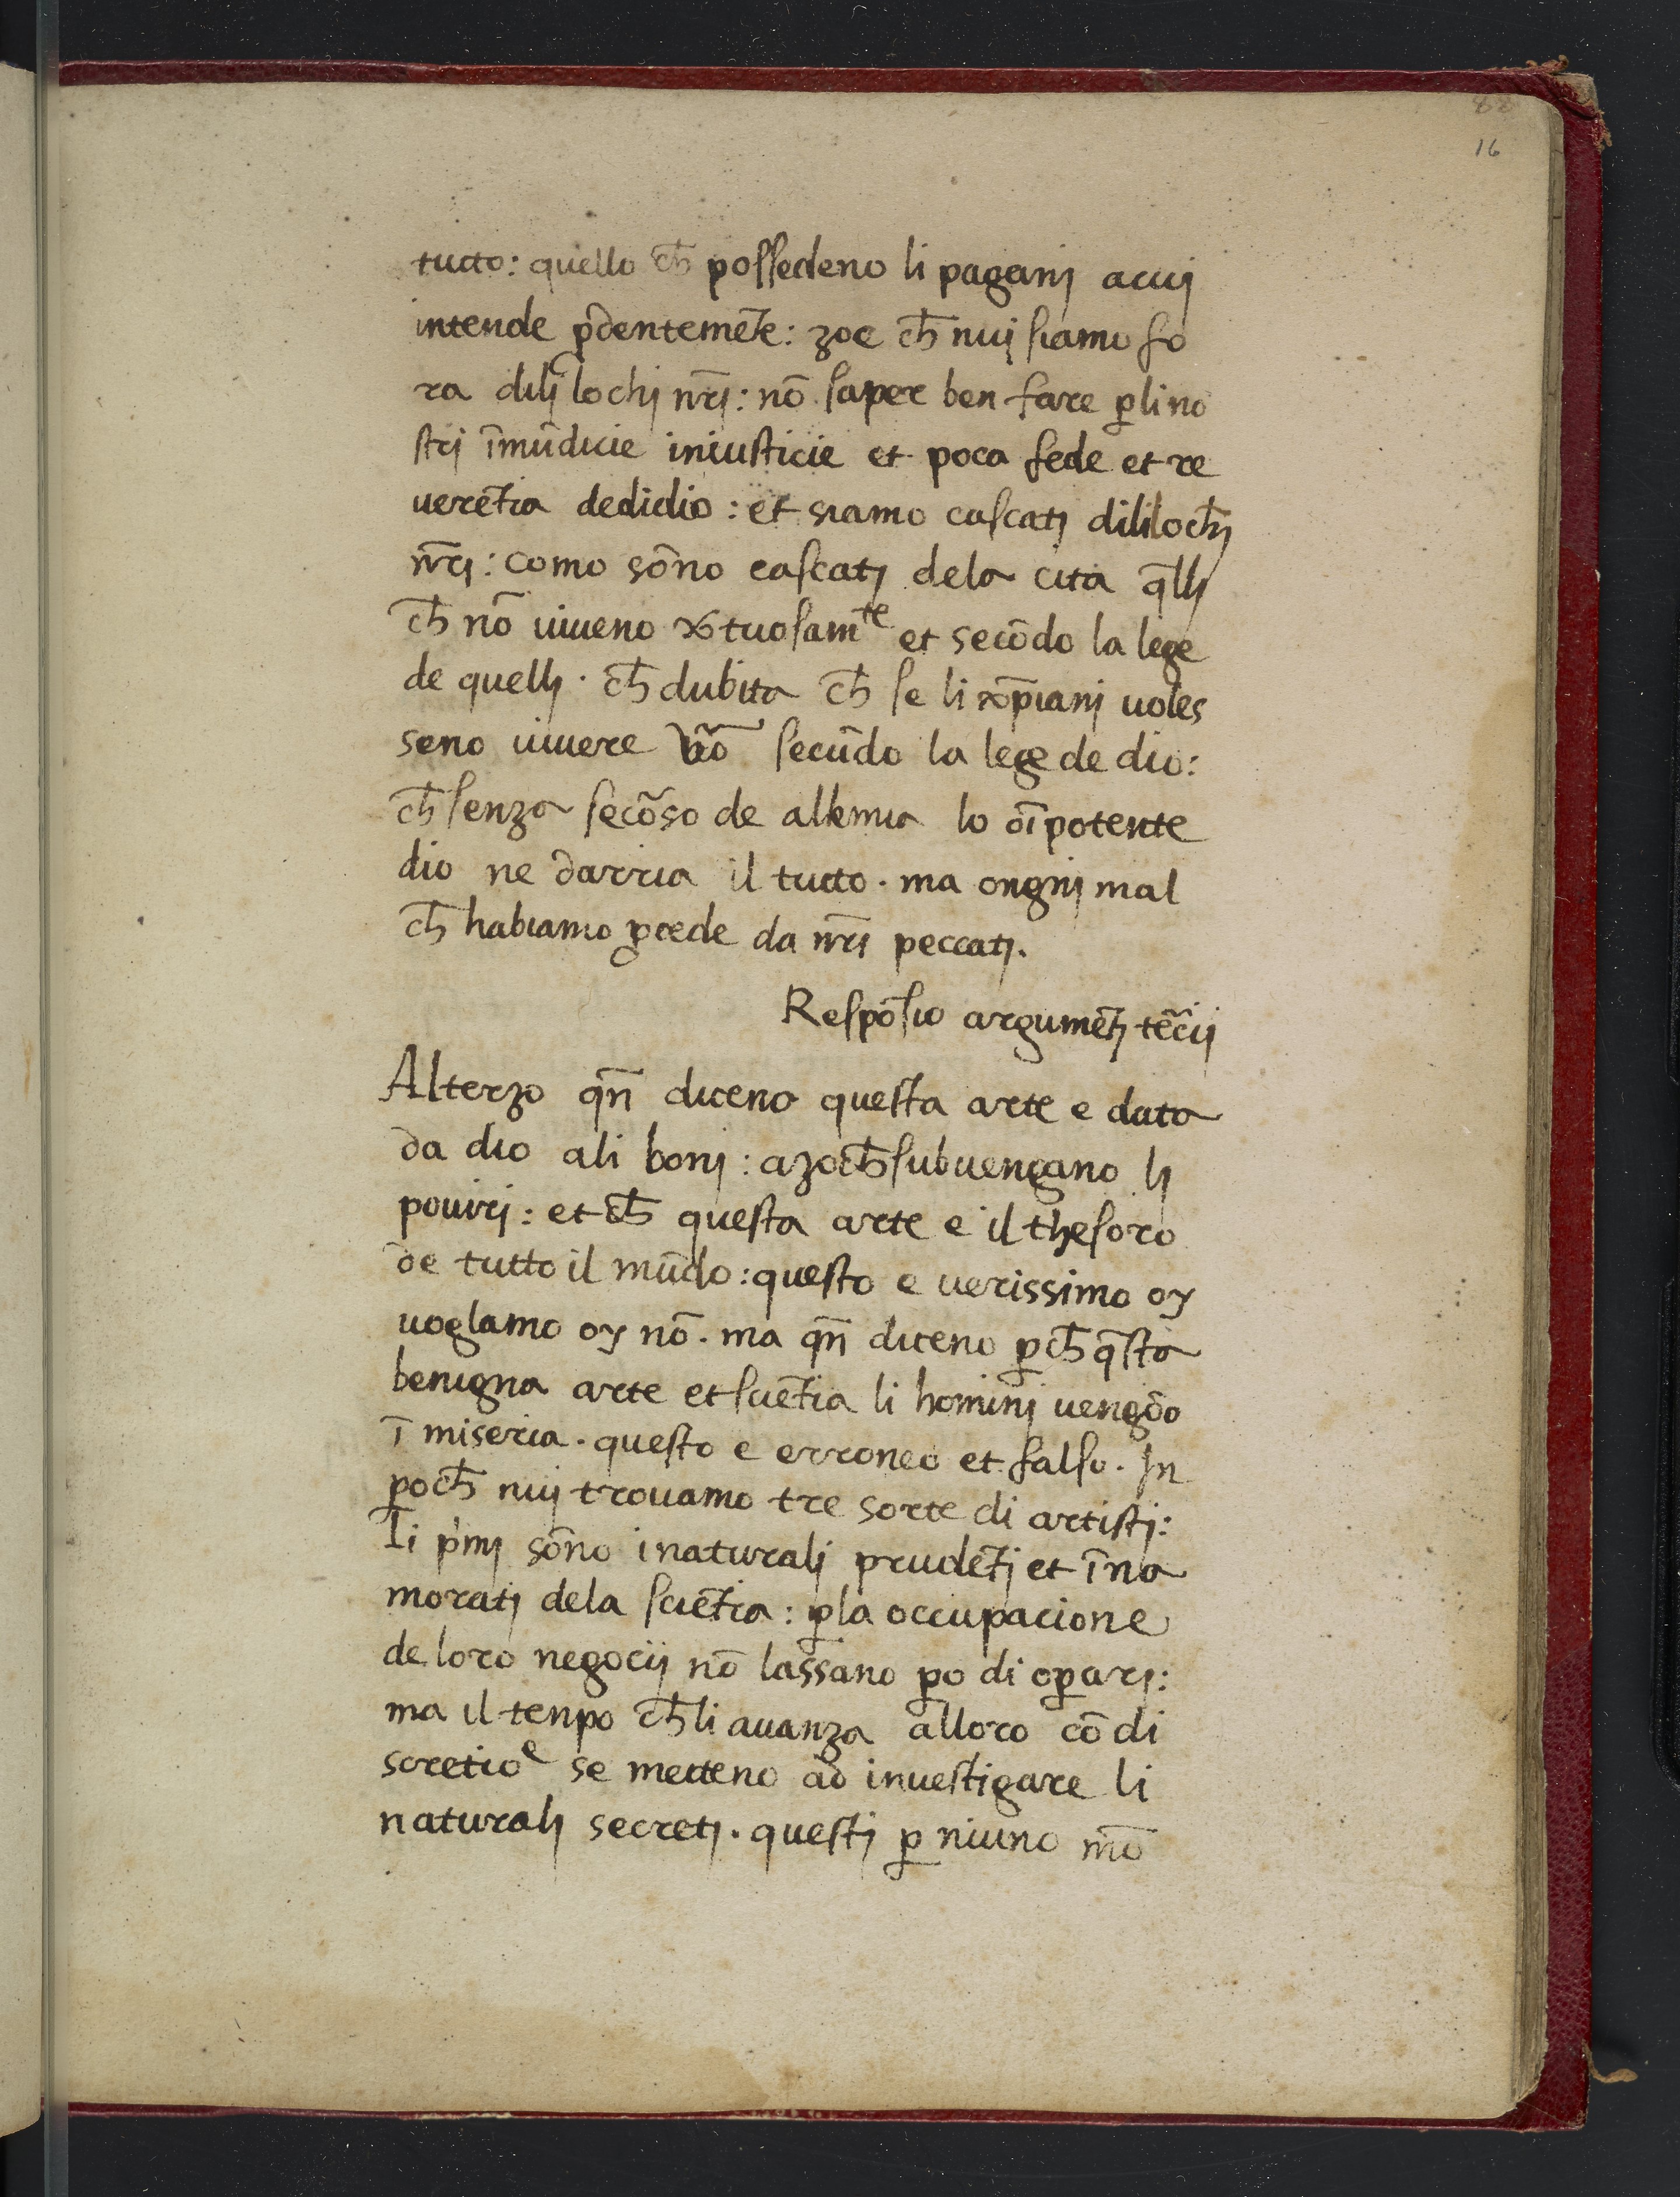 88
16
tucto: quello ch̄ possedeno li paganj acuj
intende pꝛ̄dentemēte: zoe ch̄ nuj siamo fo
ra dilj lochj nr̄j: nō saper ben fare ꝑ li no
strj īmūdicie iniusticie et poca fede et re
uerētia dedidio: et siamo cascatj dili loch̄j
nr̄j: como sōno cascatj dela cita q̄llj
ch̄ nō uiueno x̄tuosamᵗᵉ et secōdo la lege
de quellj · ch̄ dubita ch̄ se li xp̄ianj uoles
seno uiuere vēo secūdo la lege de dio:
ch̄ senza secōso de alkimia lo oīpotente
dio ne darria il tucto · ma ongnj mal
ch̄ habiamo ꝓcede da nr̄j peccatj.
Respōsio argumētj tēcij
Alterzo qn̄ diceno questa arte e data
da dio ali bonj: azoch̄ subuengano lj
pouirj: et ch̄ questa arte e il thesoro
de tutto il mūdo: questo e uerissimo oy
uoglamo oy nō · ma qn̄ diceno ꝑch̄ q̄sta
benigna arte et sciētia li hominj uengōo
ī miseria · questo e erroneo et falso · In
ꝑoch̄ nuj trouamo tre sorte di artistj:
Li p'mj sōno inaturalj prudētj et īna
moratj dela sciētia: ꝑ la occupacione
de loro negocij nō lassano ꝑo di oꝑarj:
ma il tenpo ch̄ li auanza alloro cō di
scretioᵉ se mecteno ad inuestigare li
naturalj secretj · questj ꝑ niuno mō